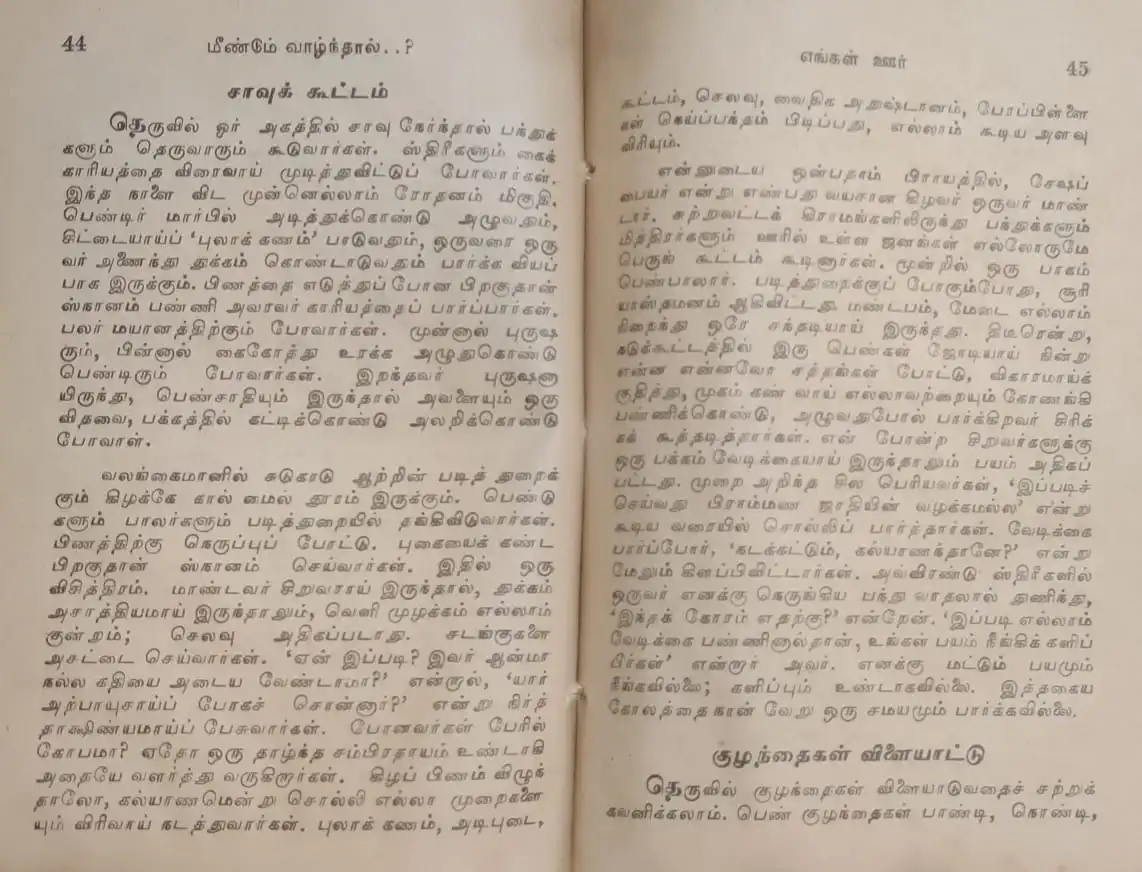 44
மீண்டும் வாழ்ந்தால்..?
சாவுக் கூட்டம்
தெருவில் ஓர் அகத்தில் சாவு நேர்ந்தால் பந்துக்
களும் தெருவாரும் கூடுவார்கள். ஸ்திரீகளும் கைக்
காரியத்தை விரைவாய் முடித்துவிட்டுப் போவார்கள்.
இந்த நாளை விட முன்னெல்லாம் ரோதனம் மிகுதி.
பெண்டிர் மார்பில் அடித்துக்கொண்டு அழுவதும்,
சிட்டையாய்ப் ‘புலாக் கணம்’ பாடுவதும், ஒருவரை ஒரு
வர் அணைந்து துக்கம் கொண்டாடுவதும் பார்க்க வியப்
பாக இருக்கும். பிணத்தை எடுத்துப் போன பிறகுதான்
ஸ்நானம் பண்ணி அவரவர் காரியத்தைப் பார்ப்பார்கள்.
பலர் மயானத்திற்கும் போவார்கள். முன்னால் புருஷ
ரும், பின்னால் கைகோத்து உரக்க அழுதுகொண்டு
பெண்டிரும் போவார்கள். இறந்தவர் புருஷனா
யிருந்து, பெண்சாதியும் இருந்தால் அவளையும் ஒரு
விதவை, பக்கத்தில் கட்டிக்கொண்டு அலறிக்கொண்டு
போவாள்.
வலங்கைமானில் சுடுகாடு ஆற்றின் படித் துறைக்
கும் கிழக்கே கால் மைல் தூரம் இருக்கும். பெண்டு
களும் பாலர்களும் படித்துறையில் தங்கிவிடுவார்கள்.
பிணத்திற்கு நெருப்புப் போட்டு. புகையைக் கண்ட
பிறகுதான் ஸ்நானம் செய்வார்கள். இதில் ஒரு
விசித்திரம். மாண்டவர் சிறுவராய் இருந்தால், துக்கம்
அசாத்தியமாய் இருந்தாலும், வெளி முழக்கம் எல்லாம்
குன்றும்; செலவு அதிகப்படாது. சடங்குகளை
அசட்டை செய்வார்கள். ‘ஏன் இப்படி? இவர் ஆன்மா
நல்ல கதியை அடைய வேண்டாமா?’ என்றால், ‘யார்
அற்பாயுசாய்ப் போகச் சொன்னார்?’ என்று நிர்த்
தாக்ஷிண்யமாய்ப் பேசுவார்கள். போனவர்கள் பேரில்
கோபமா? ஏதோ ஒரு தாழ்ந்த சம்பிரதாயம் உண்டாகி
அதையே வளர்த்து வருகிறார்கள். கிழப் பிணம் விழுந்
தாலோ, கல்யாணமென்று சொல்லி எல்லா முறைகளை
யும் விரிவாய் நடத்துவார்கள். புலாக் கணம், அடிபுடை,
எங்கள் ஊர்
45
கூட்டம், செலவு, வைதிக அநுஷ்டானம், போப்பிள்ளை
கள் நெய்ப்பந்தம் பிடிப்பது, எல்லாம் கூடிய அளவு
விரியும்.
என்னுடைய ஒன்பதாம் பிராயத்தில், சேஷப்
பையர் என்று எண்பது வயசான கிழவர் ஒருவர் மாண்
டார். சுற்றவட்டக் கிராமங்களிலிருந்து பந்துக்களும்
மித்திரர்களும் ஊரில் உள்ள ஜனங்கள் எல்லோருமே
பெருங் கூட்டம் கூடினார்கள். மூன்றில் ஒரு பாகம்
பெண்பாலார். படித்துறைக்குப் போகும்போது, சூரி
யாஸ்தமனம் ஆகிவிட்டது. மண்டபம், மேடை எல்லாம்
நிறைந்து ஒரே சந்தடியாய் இருந்தது. திடீரென்று,
நடுக்கூட்டத்தில் இரு பெண்கள் ஜோடியாய் நின்று
என்ன என்னவோ சத்தங்கள் போட்டு, விகாரமாய்க்
குதித்து, முகம் கண் வாய் எல்லாவற்றையும் கோணங்கி
பண்ணிக்கொண்டு, அழுவதுபோல் பார்க்கிறவர் சிரிக்
கக் கூத்தடித்தார்கள். என் போன்ற சிறுவர்களுக்கு
ஒரு பக்கம் வேடிக்கையாய் இருந்தாலும் பயம் அதிகப்
பட்டது. முறை அறிந்த சில பெரியவர்கள், ‘இப்படிச்
செய்வது பிராம்மண ஜாதியின் வழக்கமல்ல’ என்று
கூடிய வரையில் சொல்லிப் பார்த்தார்கள். வேடிக்கை
பார்ப்போர், ‘கடக்கட்டும், கல்யாணந்தானே?’ என்று
மேலும் கிளப்பிவிட்டார்கள். அவ்விரண்டு ஸ்திரீகளில்
ஒருவர் எனக்கு நெருங்கிய பந்து வாதலால் துணிந்து,
‘இந்தக் கோரம் எதற்கு?’ என்றேன். ‘இப்படி எல்லாம்
வேடிக்கை பண்ணினால்தான், உங்கள் பயம் நீங்கிக் களிப்
பீர்கள்’ என்றார் அவர். எனக்கு மட்டும் பயமும்
நீங்கவில்லை; களிப்பும் உண்டாகவில்லை. இத்தகைய
கோலத்தை நான் வேறு ஒரு சமயமும் பார்க்கவில்லை.
குழந்தைகள் விளையாட்டு
தெருவில் குழந்தைகள் விளையாடுவதைச் சற்றுக்
கவனிக்கலாம். பெண் குழந்தைகள் பாண்டி, நொண்டி,